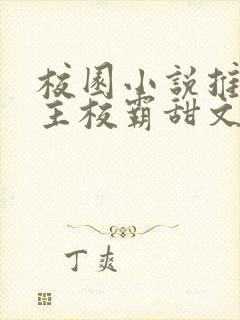 校园小说推
主校霸甜文
丁爽